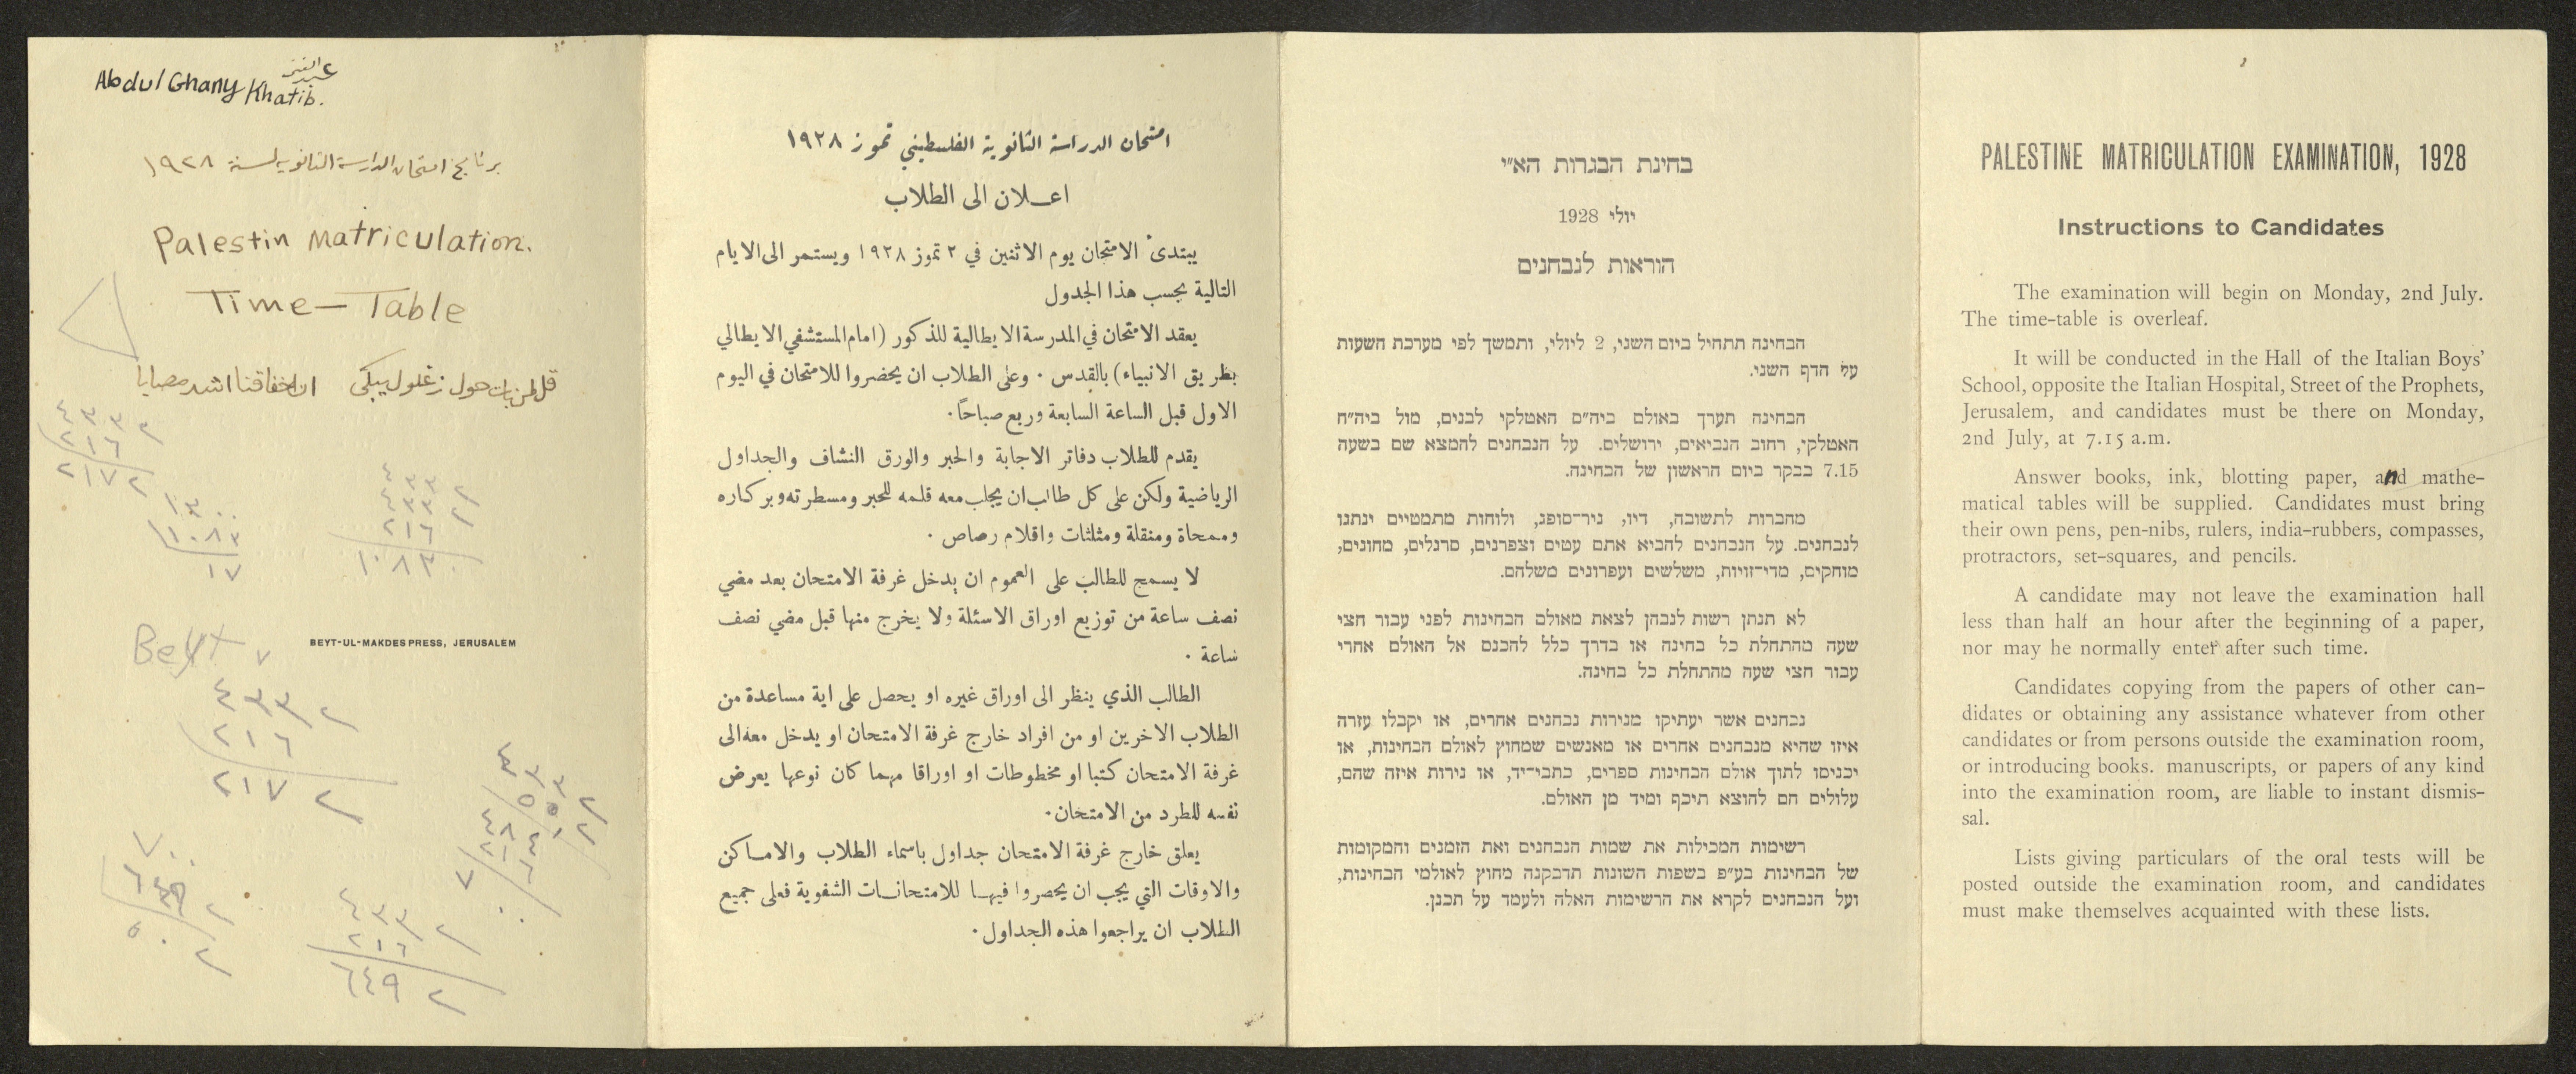 Abdul Ghany Khatib.
عبد الغني
برنامج امتحان الدراسة الثانوية لسنة ١٩٢٨
Palestin Matriculation.
Time - Table
٤٣٣٢
٢١٦
٢١٧٢
١٣٠٠
١٠٨٣
١٧
٤٣٣٢
٢١٦
١٠٨٣
BEYT-UL-MAKDES PRESS, JERUSALEM
Beyt
٧
٤٣٣٢
٢١٦
٢١٧٢
٤٣٣٢
٢١٦
٦٤٩٢
امتحان الدراسة الثانوية الفلسطيني تموز ١٩٢٨
اعـلان الى الطلاب
يبتدئ الامتحان يوم الاثنين في ٢ تموز ١٩٢٨ ويستمر الى الايام
التالية بحسب هذا الجدول
يعقد الامتحان في المدرسة الايطالية للذكور (امام المستشفي الايطالي
بطريق الانبياء) بالقدس ٠ وعلى الطلاب ان يحضروا للامتحان في اليوم
الاول قبل الساعة السابعة وربع صباحاً٠
يقدم للطلاب دفاتر الاجابة والحبر والورق النشاف والجداول
الرياضية ولكن على كل طالب ان يجلب معه قلمه للحبر ومسطرته وبركاره
وممحاة ومنقلة ومثلثات واقلام رصاص ٠
لا يسمح للطالب على العموم ان يدخل غرفة الامتحان بعد مضي
نصف ساعة من توزيع اوراق الاسئلة ولا يخرج منها قبل مضي نصف
ساعة ٠
الطالب الذي ينظر الى اوراق غيره او يحصل على اية مساعدة من
الطلاب الاخرين او من افراد خارج غرفة الامتحان او يدخل معه الى
غرفة الامتحان كتبا او مخطوطات او اوراقا مهما كان نوعها يعرض
نفسه للطرد من الامتحان٠
يعلق خارج غرفة الامتحان جداول باسماء الطلاب والامـاكن
والاوقات التي يجب ان يحصروا فيهـا للامتحانـات الشفوية فعلى جميع
الطلاب ان يراجعوا هذه الجداول٠
בחינת הבגרות הא״י
יולי 1928
הוראות לנבחנים
הבחינה תתחיל ביום השני, 2 ליולי, ותמשך לפי מערכת השעות
על הדף השני.
הבחינה תערך באולם ביה״ס האטלקי לבנים, מול ביה״ח
האטלקי, רחוב הנביאים, ירושלים. על הנבחנים להמצא שם בשעה
7.15 בבקר ביום הראשון של הבחינה.
מחברות לתשובה, דיו, ניר־סופג, ולוחות מתמטיים ינתנו
לנבחנים. על הנבחנים להביא אתם עטים וצפרנים, סרגלים, מחוגים,
מוחקים, מדי־זויות, משלשים ועפרונים משלהם.
לא תנתן רשות לנבחן לצאת מאולם הבחינות לפני עבור חצי
שעה מהתחלת כל בחינה או בדרך כלל להכנס אל האולם אחרי
עבור חצי שעה מהתחלת כל בחינה.
נבחנים אשר יעתיקו מנירות נבחנים אחרים, או יקבלו עזרה
איזו שהיא מנבחנים אחרים או מאנשים שמחוץ לאולם הבחינות, או
יכניסו לתוך אולם הבחינות ספרים, כתבי־יד, או נירות איזה שהם,
עלולים הם להוצא תיכף ומיד מן האולם.
רשימות המכילות את שמות הנבחנים ואת הזמנים והמקומות
של הבחינות בע״פ בשפות השונות תדבקנה מחוץ לאולמי הבחינות,
ועל הנבחנים לקרא את הרשימות האלה ולעמד על תכנן.
PALESTINE MATRICULATION EXAMINATION, 1928
Instructions to Candidates
The examination will begin on Monday, 2nd July.
The time-table is overleaf.
It will be conducted in the Hall of the Italian Boys'
School, opposite the Italian Hospital, Street of the Prophets,
Jerusalem, and candidates must be there on Monday,
2nd July, at 7.15 a.m.
Answer books, ink, blotting paper, and mathe-
matical tables will be supplied. Candidates must bring
their own pens, pen-nibs, rulers, india-rubbers, compasses,
protractors, set-squares, and pencils.
A candidate may not leave the examination hall
less than half an hour after the beginning of a paper,
nor may he normally enter after such time.
Candidates copying from the papers of other can-
didates or obtaining any assistance whatever from other
candidates or from persons outside the examination room,
or introducing books. manuscripts, or papers of any kind
into the examination room, are liable to instant dismis-
sal.
Lists giving particulars of the oral tests will be
posted outside the examination room, and candidates
must make themselves acquainted with these lists.